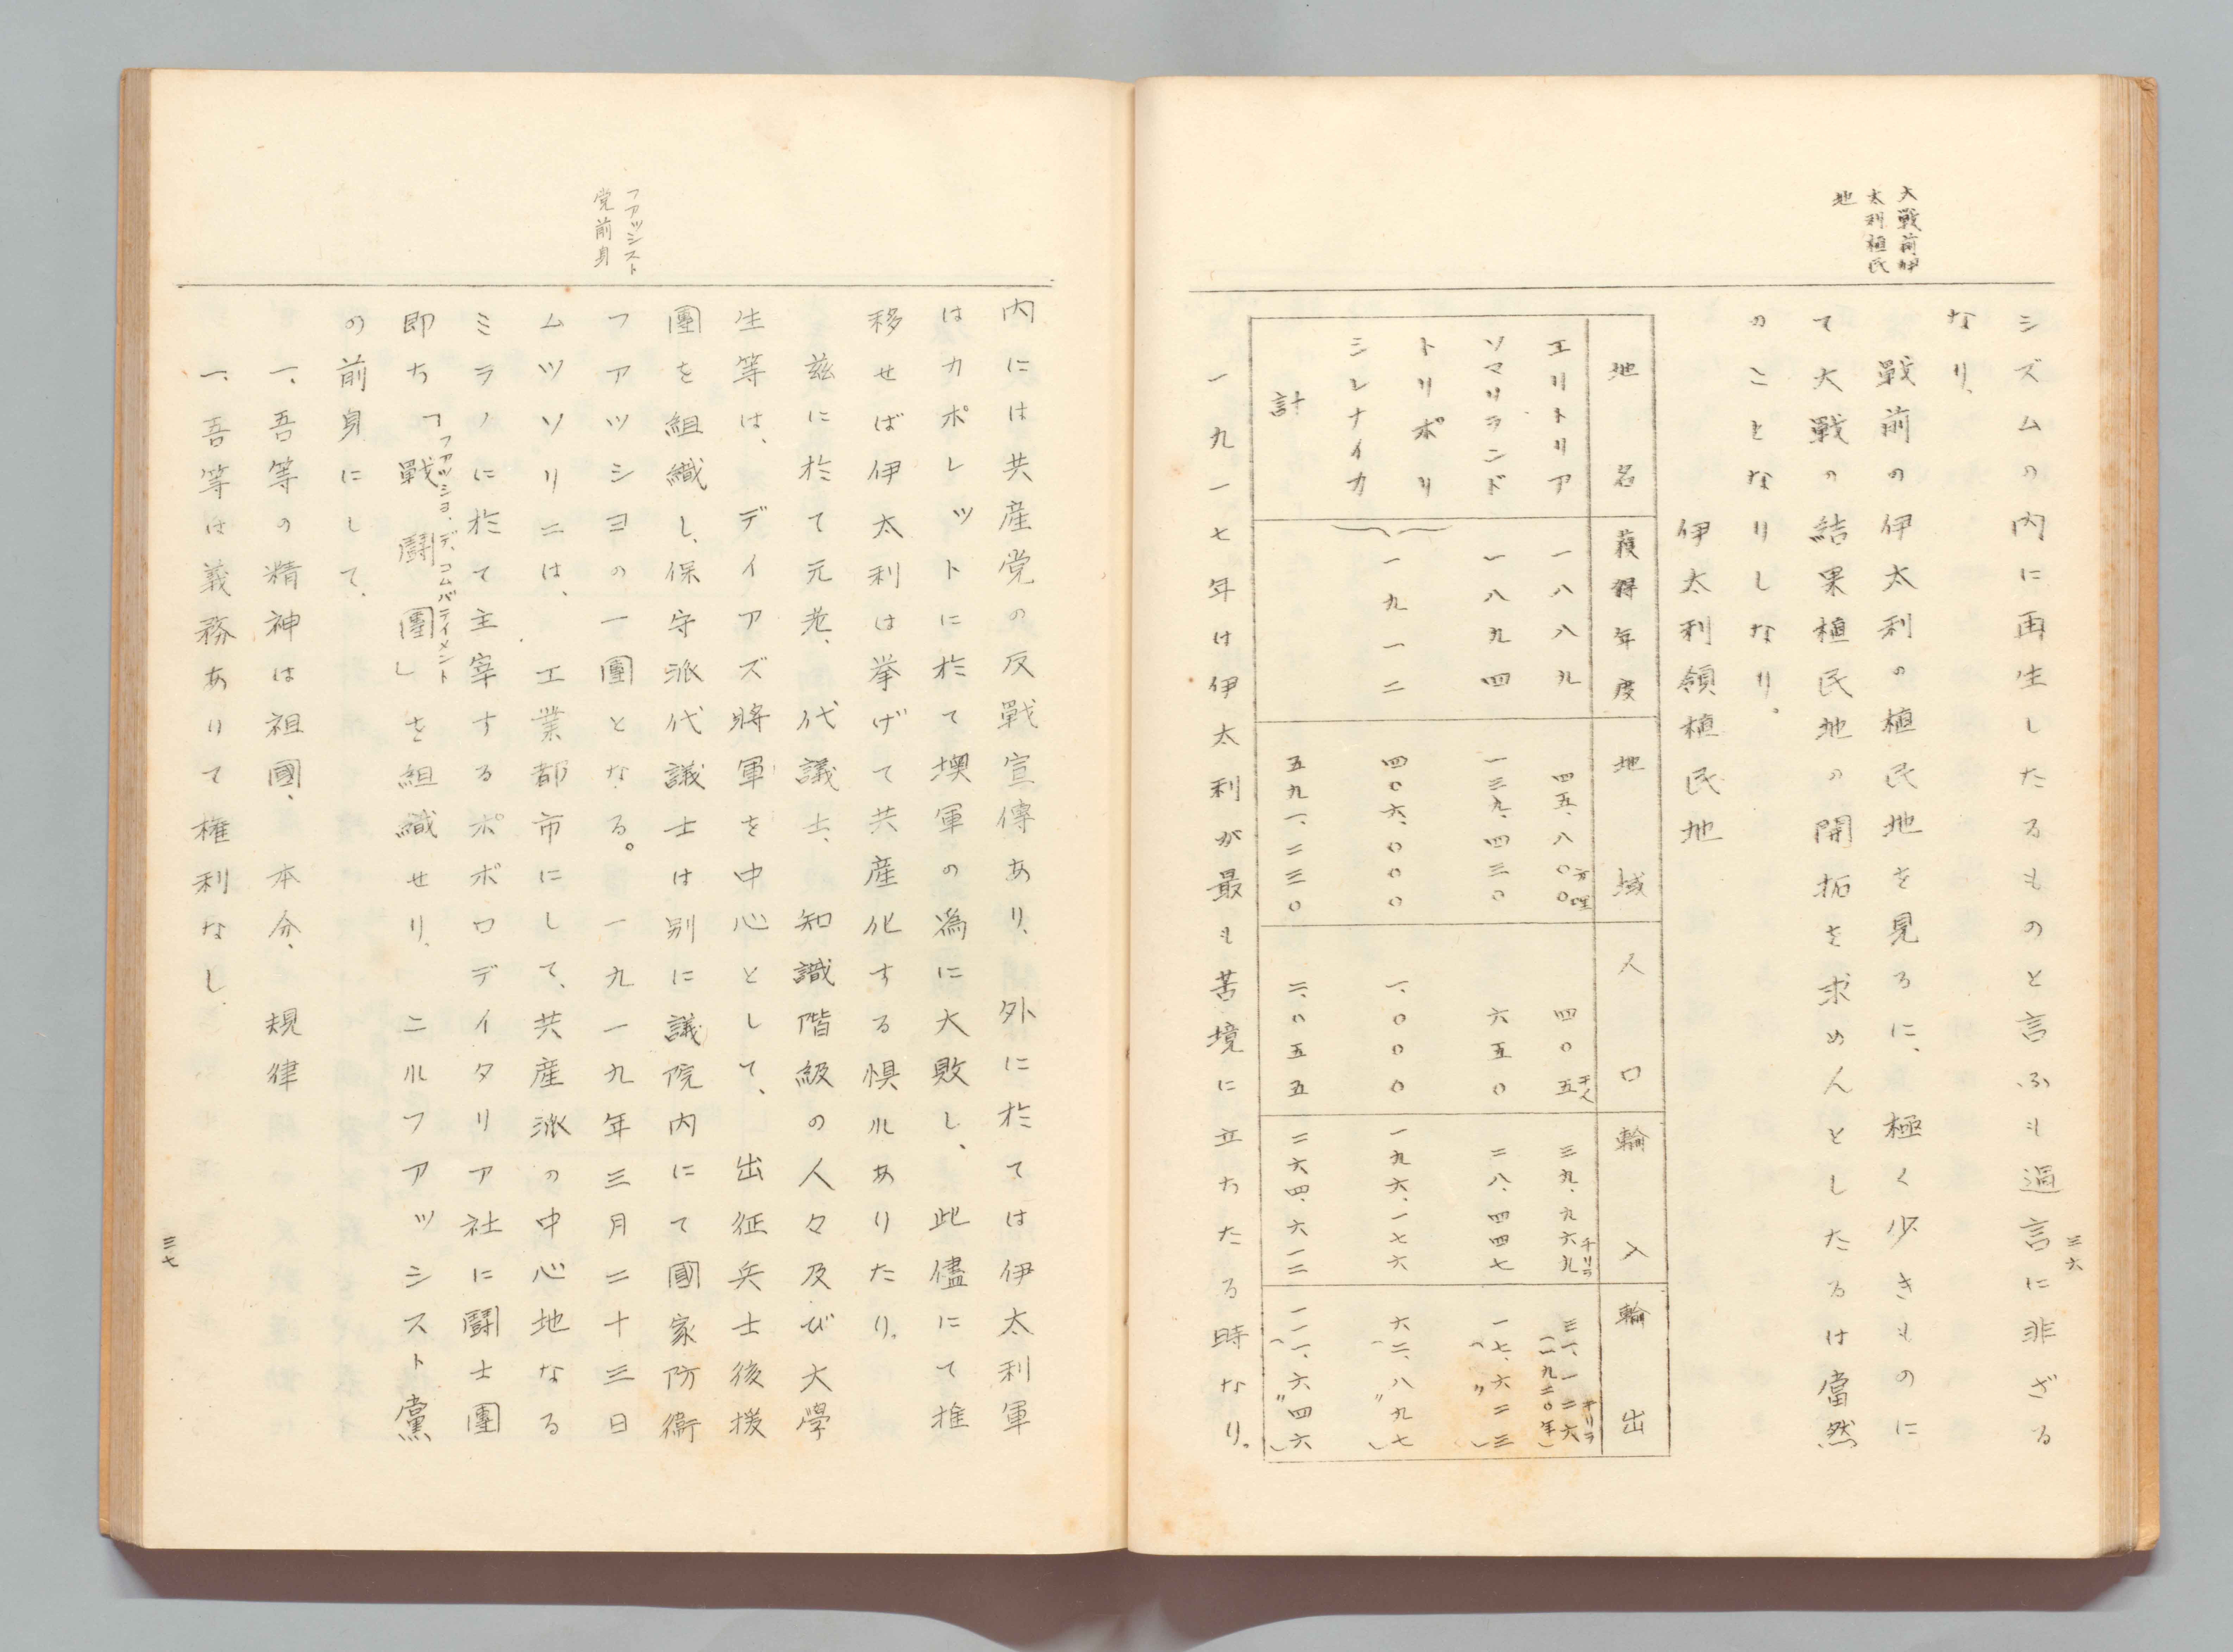 大戦前伊
太利植民
地
三六
シズムの内に再生したるものと言ふも過言に非ざる
なり、
戦前の伊太利の植民地を見るに、極く少きものに
て大戦の結果植民地の開拓を求めんとしたるは當然
のことなりしなり。
伊太利領植民地
地名 獲得年度 地域 人口 輸入 輸出
エリトリア 一八八九 四五、八〇〇方哩 四〇五千人 三九、九六九千リラ 三一、一二六千リラ(一九二〇年)
ソマリランド 一八九四 一三九、四三〇 六五〇 二八、四四七 一七、六二三(〃)
トリポリ シレナイカ 一九一二 四〇六、〇〇〇 一、〇〇〇 一九六、一七六 六二、八九七(〃)
計 五九一、二三〇 二、〇五五 二六四、六一二 一一一、六四六(〃)
一九一七年は伊太利が最も苦境に立ちたる時なり。
ファッシスト
党前身
内には共産党の反戦宣傳あり、外に於ては伊太利軍
はカポレットに於て墺軍の為に大敗し、此儘にて推
移せば伊太利は挙げて共産化する惧ルありたり。
茲に於て元老、代議士、知識階級の人々及び大學
生等は、デイアズ將軍を中心として、出征兵士後援
團を組織し、保守派代議士は別に議院内にて國家防衛
フアッシヨの一團となる。一九一九年三月二十三日
ムツソリニは、工業都市にして、共産派の中心地なる
ミラノに於て主宰するポポロデイタリア社に闘士團
即ち「戰闘團」を組織せり、ニルフアッシスト黨
フアッショ、デ、コムバテイメント
の前身にして、
一、吾等の精神は祖國、本分、規律
一、吾等は義務ありて権利なし、
三七